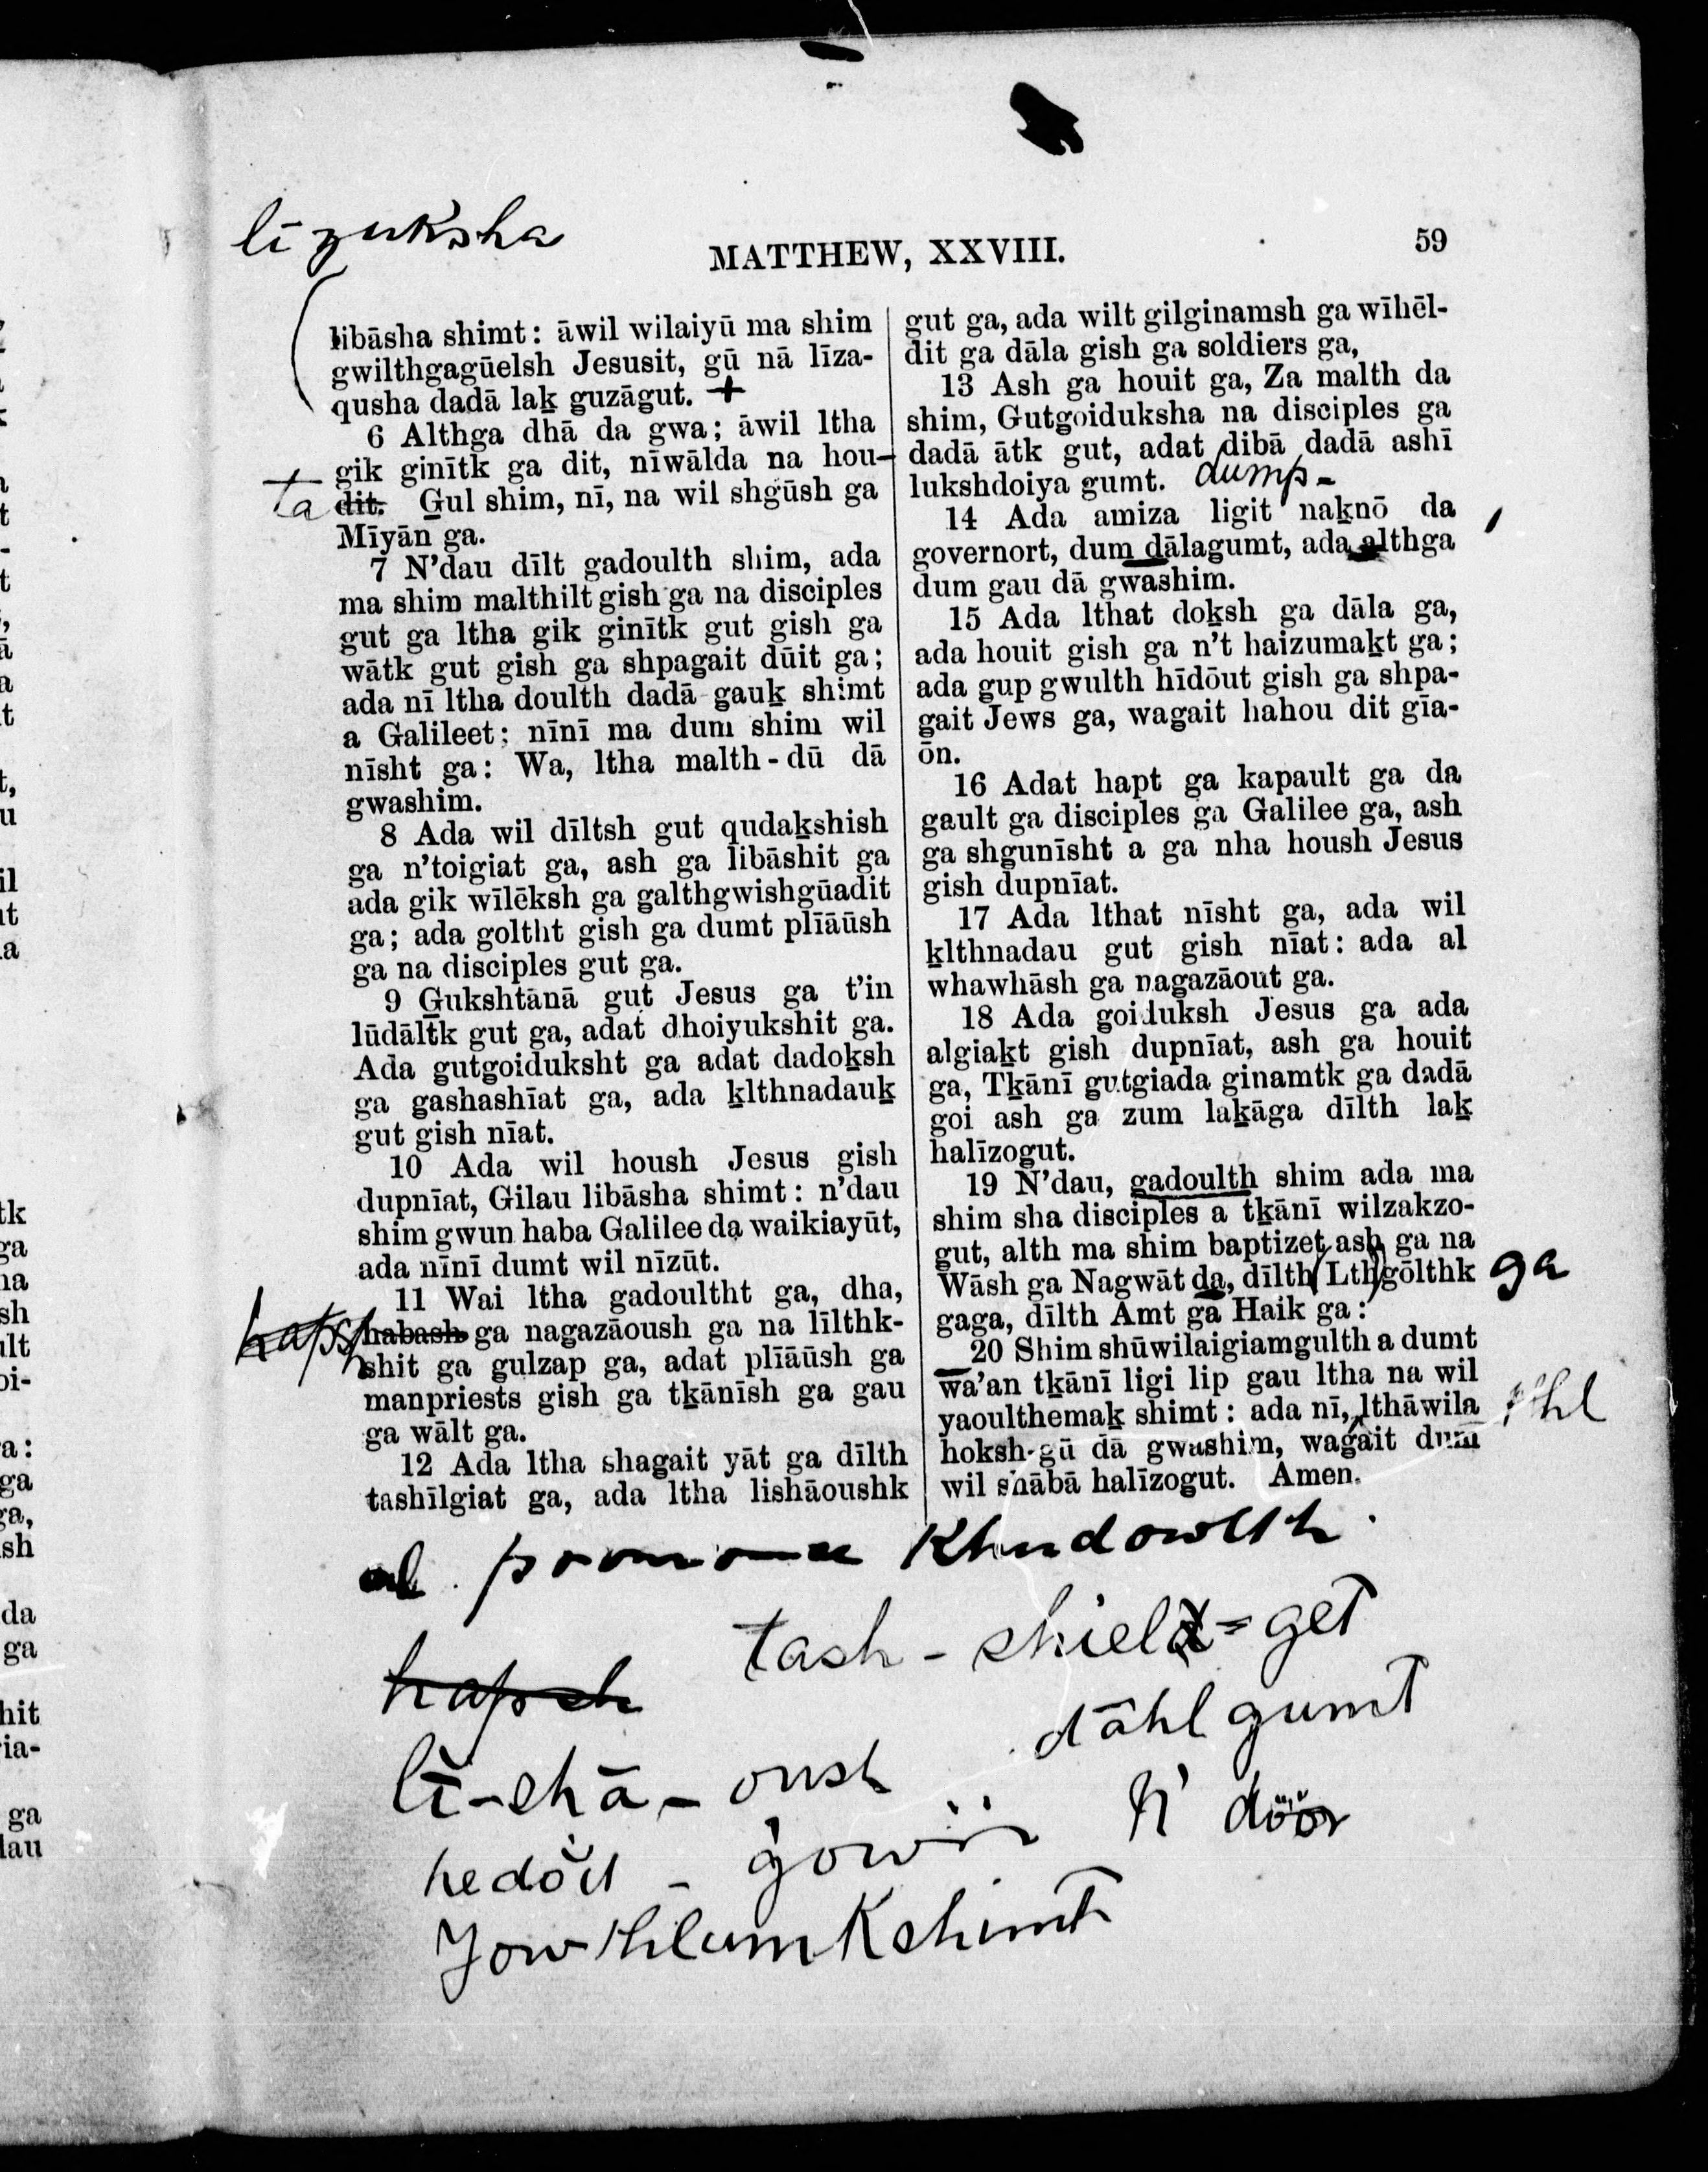 lizuksha
MATTHEW, XXVIII.
59
libāsha shimt: āwil wilaiyū ma shim
gwilthgagūelsh Jesusit, gū nā līza-
qusha dadā laḵ guzāgut. +
6 Althga dhā da gwa; āwil ltha
gik ginītk ga dit, nīwālda na hou-
ta dit. G̱ul shim, nī, na wil shgūsh ga
Mīyān ga.
7 N'dau dīlt gadoulth shim, ada
ma shim malthilt gish ga na disciples
gut ga ltha gik ginītk gut gish ga
wātk gut gish ga shpagait dūit ga;
ada nī ltha doulth dadā gauḵ shimt
a Galileet; nīnī ma dum shim wil
nīsht ga: Wa, ltha malth-dū dā
gwashim.
8 Ada wil dīltsh gut qudaḵshish
ga n'toigiat ga, ash ga libāshit ga
ada gik wīlēksh ga galthgwishgūadit
ga; ada goltht gish ga dumt plīāūsh
ga na disciples gut ga.
9 G̱ukshtānā gut Jesus ga t'in
lūdāltk gut ga, adat dhoiyukshit ga.
Ada gutgoiduksht ga adat dadoḵsh
ga gashashīat ga, ada ḵlthnadauḵ
gut gish nīat.
10 Ada wil housh Jesus gish
dupnīat, Gilau libāsha shimt: n'dau
shim gwun haba Galilee da waikiayūt,
ada nīnī dumt wil nīzūt.
11 Wai ltha gadoultht ga, dha,
habash ga nagazāoush ga na līlthk-
shit ga gulzap ga, adat plīāūsh ga
manpriests gish ga tḵānīsh ga gau
ga wālt ga.
12 Ada ltha shagait yāt ga dīlth
tashīlgiat ga, ada ltha lishāoushk
gut ga, ada wilt gilginamsh ga wīhēl-
dit ga dāla gish ga soldiers ga,
13 Ash ga houit ga, Za malth da
shim, Gutgoiduksha na disciples ga
dadā ātk gut, adat dibā dadā ashī
lukshdoiya gumt. dump-
14 Ada amiza ligit naḵnō da
governort, dum dālagumt, ada althga
dum gau dā gwashim.
15 Ada lthat doḵsh ga dāla ga,
ada houit gish ga n't haizumaḵt ga;
ada gup gwulth hīdōut gish ga shpa-
gait Jews ga, wagait hahou dit gīa-
ōn.
16 Adat hapt ga kapault ga da
gault ga disciples ga Galilee ga, ash
ga shgunīsht a ga nha housh Jesus
gish dupnīat.
17 Ada lthat nīsht ga, ada wil
ḵlthnadau gut gish nīat: ada al
whawhāsh ga nagazāout ga.
18 Ada goiduksh Jesus ga ada
algiaḵt gish dupnīat, ash ga houit
ga, Tḵānī gutgiada ginamtk ga dadā
goi ash ga zum laḵāga dīlth laḵ
halīzogut.
19 N'dau, gadoulth shim ada ma
shim sha disciples a tḵānī wilzakzo-
gut, alth ma shim baptizet ash ga na
Wāsh ga Nagwāt da, dīlth (Lth) gōlthk ga
gaga, dīlth Amt ga Haik ga:
20 Shim shūwilaigiamgulth a dumt
wa'an tḵānī ligi lip gau ltha na wil
yaoulthemaḵ shimt: ada nī, lthāwila
hoksh-gū dā gwashim, wagait dum
wil shābā halīzogut. Amen.
tash - shield = get
hapsh
dāhlgumt
lī-shā-oush